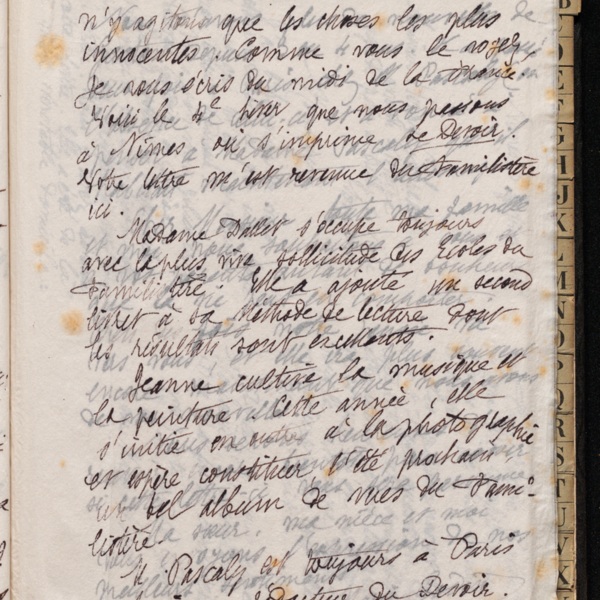 n'y agitons que les choses les plus
innocentes. Comme vous le voyez,
je vous écris du midi de la France.
Voici le 4e hiver que nous passons
à Nîmes où s'imprime le Devoir.
Votre lettre m'est revenue du Familistère
ici.
Madame Dallet s'occupe toujours
avec la plus vive sollicitude des Ecoles du
Familistère. Elle a ajouté un second
livret à sa Méthode de lecture dont
les résultats sont excellents.
Jeanne cultive la musique et
la peinture. Cette année, elle
s'initie en outre à la photographie
et espère constituer l'été prochain
un bel album de vues du Fami-
listère.
M Pascaly est toujours à Paris
du Devoir.
B
D
E
F
G
H
J
K
L
M
N
O
P
Q
R
S
T
U
V
X